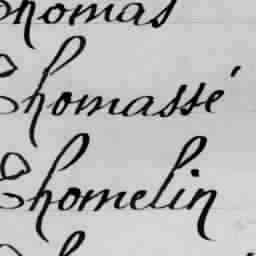 Thomas
Thomassé
Thomelin